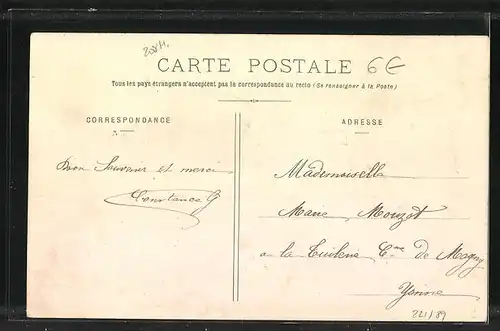 208M.
CARTE POSTALE 6€
Tous les pays étrangers n'acceptent pas la correspondance au recto (Se renseigner à la Poste)
CORRESPONDANCE
ADRESSE
Bon Souvenir et merci
Constance G
Mademoiselle
Marie Mouzot
a la Tuilerie Cne de Magny
Yonne
221/89